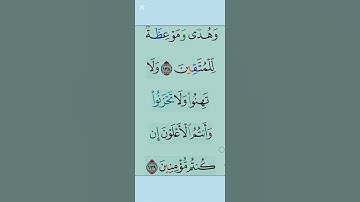 وَهُدًى وَمَوْعِظَةٌ
لِّلْمُتَّقِينَ ١٣٨ وَلَا
تَهِنُوا۟ وَلَا تَحْزَنُوا۟
وَأَنتُمُ ٱلْأَعْلَوْنَ إِن
كُنتُم مُّؤْمِنِينَ ١٣٩